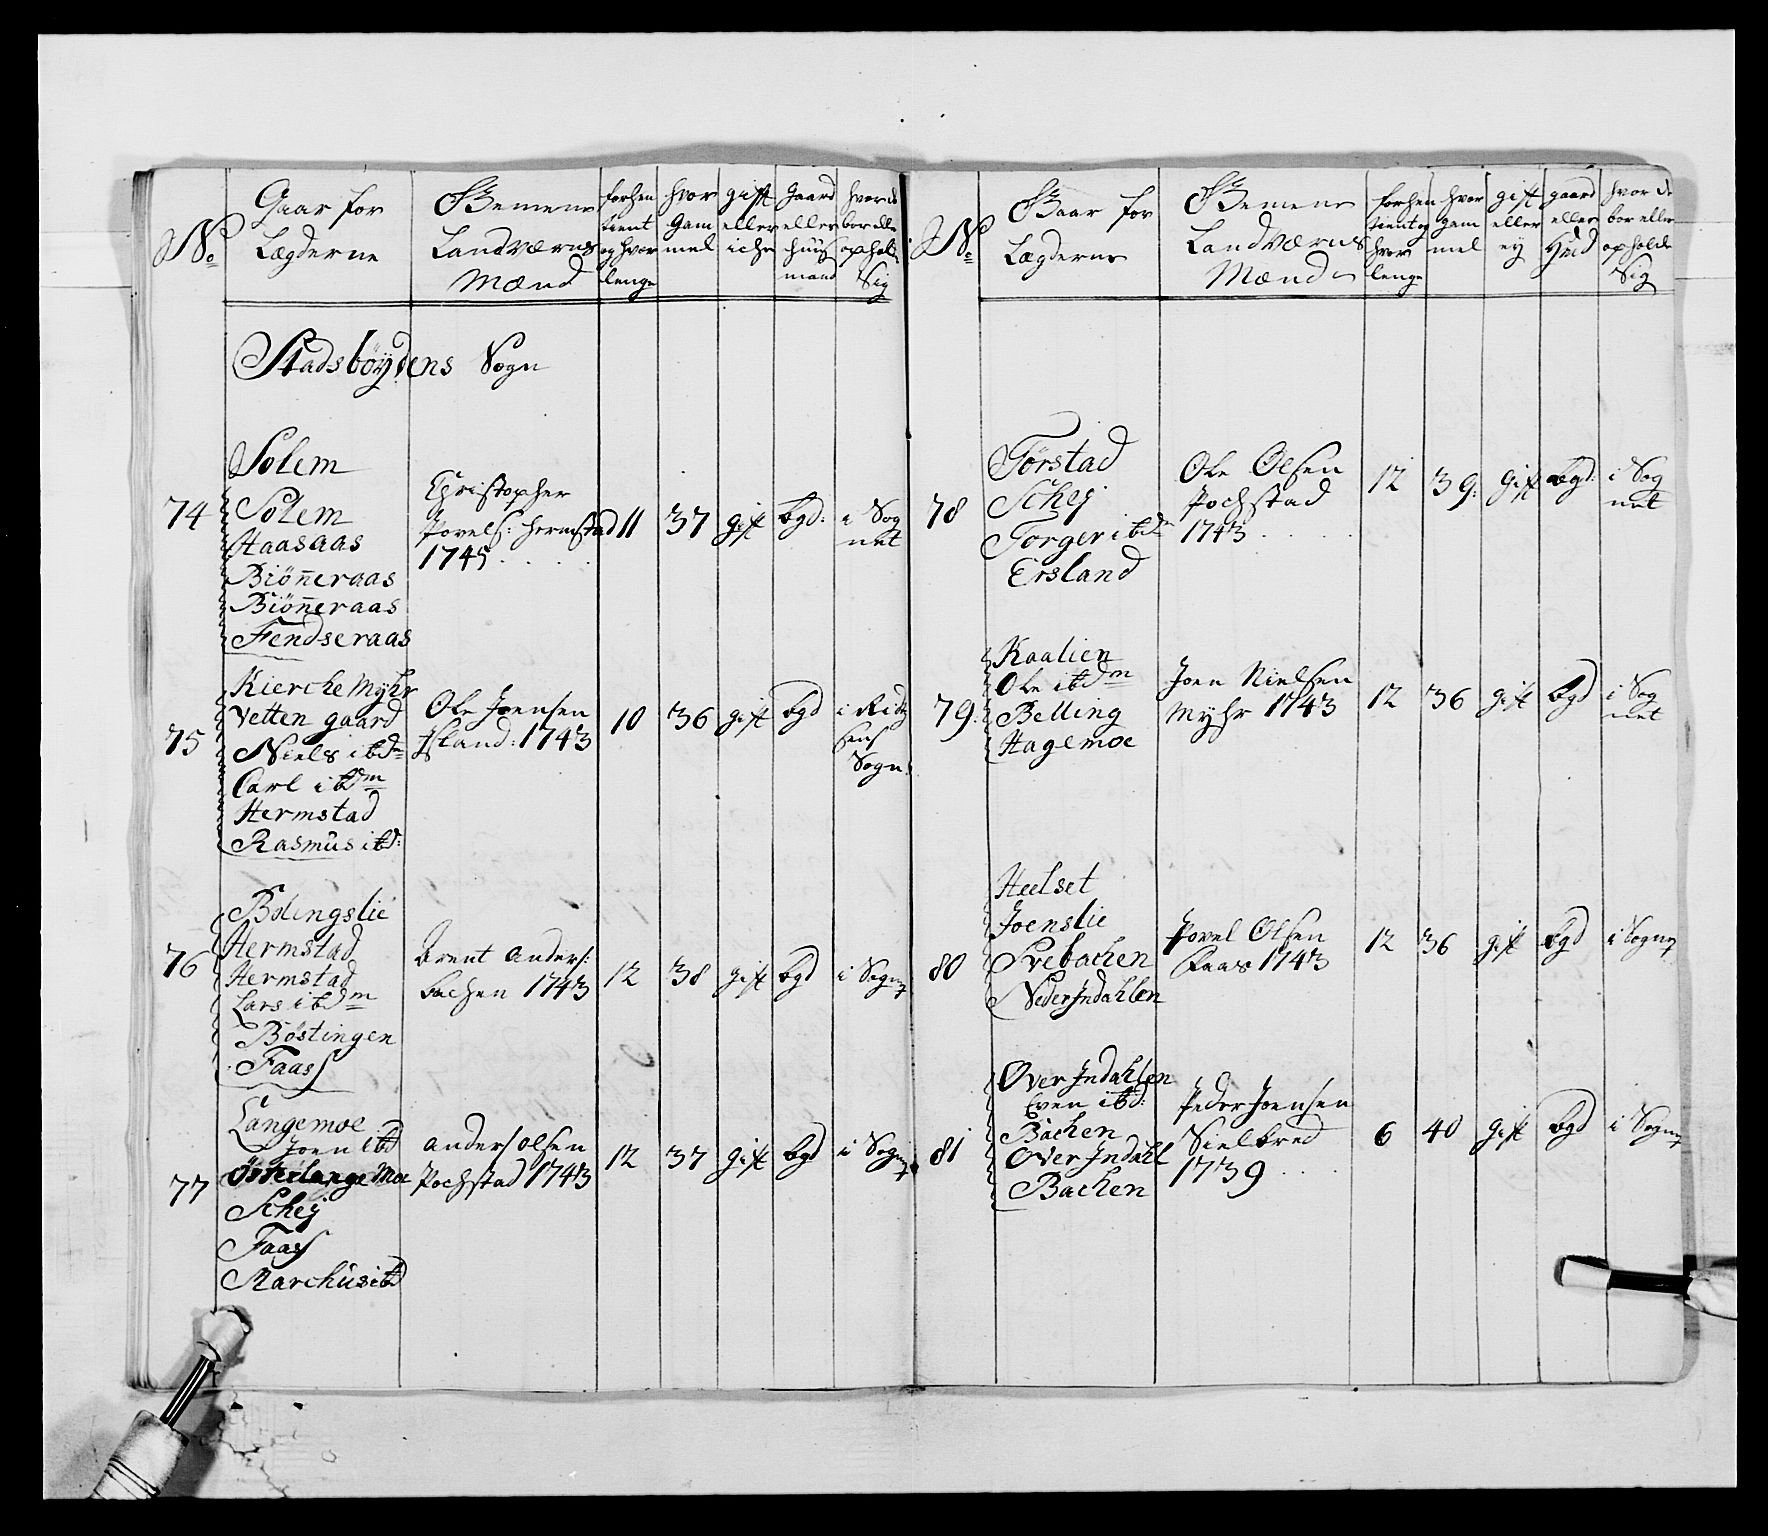 No
Gaar for
Lægderne
Gemene
Landværns
Mænd
forhen
tient
og hvor
lenge
hvor
Gam
mel
gift
eller
iche
Gaard
eller
huus
mand
hvor de
bor eller
opholde
Sig
Stadsböÿdens Sogn
74
Solem
Solem
Haasaas
Biön̄eraas
Biön̄eraas
Fendseraas
Christopher
Povels: Hermstad
1745 . . . .
11
37
gift
bgd:
i Sog
net
75
Kierche Myhr
Vetten gaard
Niels ibdm
Carl ibdm
Hermstad
Rasmus ibd:
Ole Joensen
Island: 1743
10
36
gift
bgd
i
Sogn:
76
Bolingslie
Hermstad
Hermstad
Lars ibdm
Böstingen
Faas
Arent Anders:
Bachen 1743
12
38
gift
bgd
i Sogn
77
Langemoe
Joen ibd
Österlange Moe
Schej
Faas
Marchus ibd
Anders Olsen
Pochstad 1743
12
37
gift
bgd
i Sogn
No
Gaar for
Lægderne
Gemene
Landværns
Mænd
forhen
tient og
hvor
lenge
hvor
gam
mel
gift
eller
ey
gaard
eller
Hmd
hvor de
bor eller
opholde
Sig
78
Törstad
Schej
Torger ibdm
Ersland
Ole Olsen
Pochstad
1743 . . . .
12
39:
gift
bgd:
i Sog
net
79:
Kaalien
Ole ibdm
Belling
Hagemoe
Joen Nielsen
Myhr 1743
12
36
gift
bgd
i Sog
net
80
Heelset
Joenslie
Svebachen
Neder Jndahlen
Povel Olsen
Faas 1743
12
36
gift
bgd
i Sogn
81
Over Jndahlen
Even ibd:
Bachen
Over Jndahl
Bachen
Peder Joensen
Sielbred
1739 . . .
6
40
gift
bgd
i Sogn